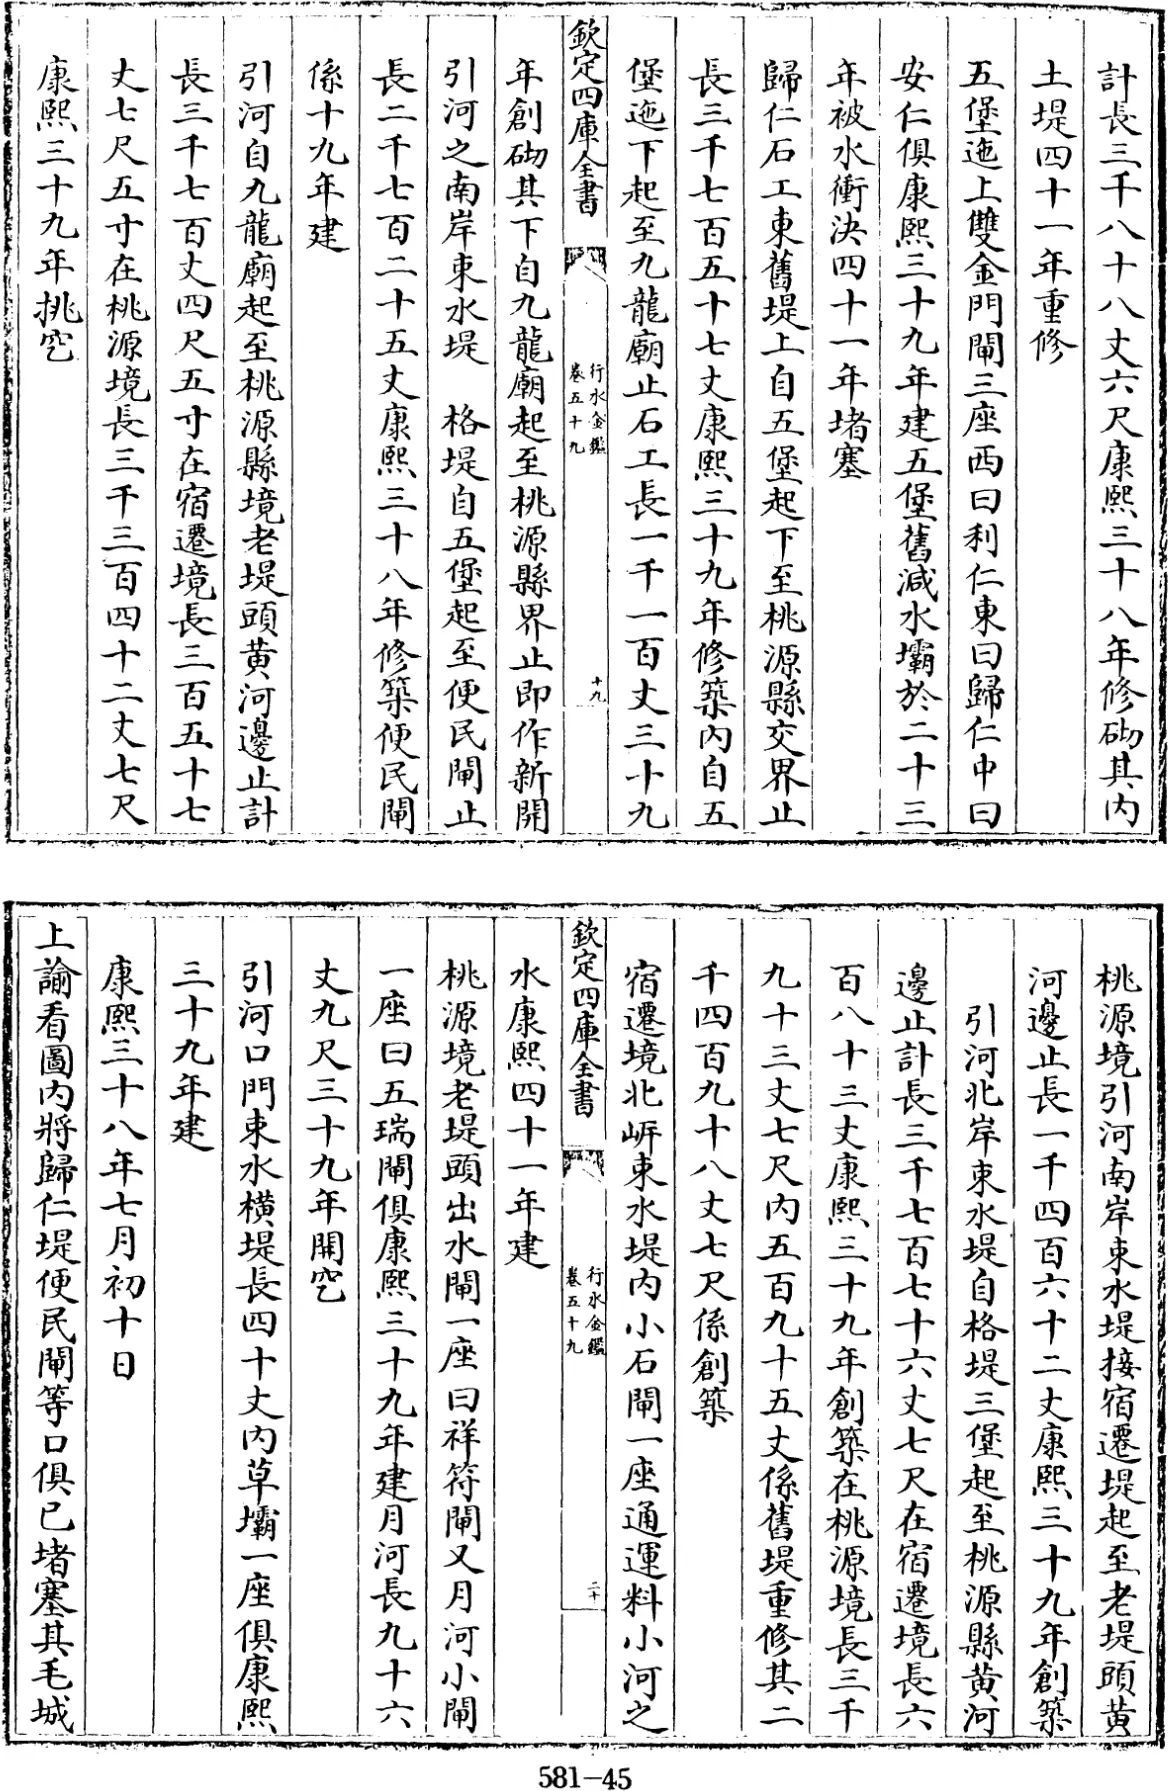 計長三千八十八丈六尺康熙三十八年修砌其内
土堤四十一年重修
五堡迤上雙金門閘三座西曰利仁東曰歸仁中曰
安仁俱康熙三十九年建五堡舊減水壩於二十三
年被水衝決四十一年堵塞
歸仁石工東舊堤上自五堡起下至桃源縣交界止
長三千七百五十七丈康熙三十九年修築内自五
堡迤下起至九龍廟止石工長一千一百丈三十九
欽定四庫全書
行水金鑑
卷五十九
十九
年創砌其下自九龍廟起至桃源縣界止即作新開
引河之南岸束水堤 格堤自五堡起至便民閘止
長二千七百二十五丈康熙三十八年修築便民閘
係十九年建
引河自九龍廟起至桃源縣境老堤頭黄河邊止計
長三千七百丈四尺五寸在宿遷境長三百五十七
丈七尺五寸在桃源境長三千三百四十二丈七尺
康熙三十九年挑空
桃源境引河南岸束水堤接宿遷堤起至老堤頭黄
河邊止長一千四百六十二丈康熙三十九年創築
引河北岸束水堤自格堤三堡起至桃源縣黄河
邊止計長三千七百七十六丈七尺在宿遷境長六
百八十三丈康熙三十九年創築在桃源境長三千
九十三丈七尺内五百九十五丈係舊堤重修其二
千四百九十八丈七尺係創築
宿遷境北岍束水堤内小石閘一座通運料小河之
欽定四庫全書
行水金鑑
卷五十九
二十
水康熙四十一年建
桃源境老堤頭出水閘一座曰祥符閘又月河小閘
一座曰五瑞閘俱康熙三十九年建月河長九十六
丈九尺三十九年開空
引河口門束水橫堤長四十丈内草壩一座俱康熙
三十九年建
康熙三十八年七月初十日
上諭看圖内將歸仁堤便民閘等口俱已堵塞其毛城
581-45